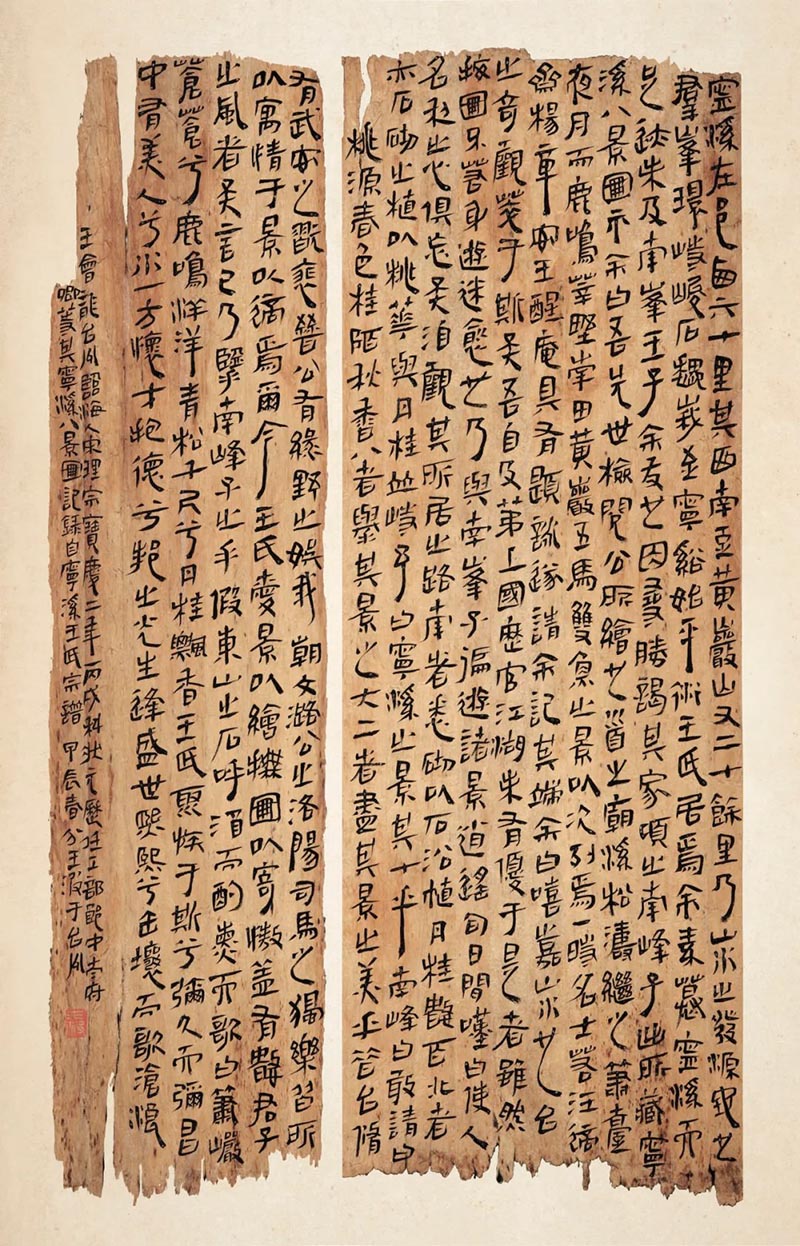 寧溪左邑西六十里其西南至黃巖山又二十餘里乃山水之發源或也
羣峯環峙峻石巍峩至寧谿始平衍王氏居焉余素慕寧溪而
足跡未及南峯王子余友也因尋勝謁其家頃之南峰子出所藏寧
溪八景圖示余曰吾先世檢閱公所繪也首之廟溪松濤繼之蕭臺
夜月而鹿鳴 墅嘗田黃巖五馬雙魚之景以次列焉一時名士若汪
楊章安王醒庵具有題詠遂請余記其端余曰嘻嘉山水也台
之奇觀萃于斯矣吾自及第上國歷官江湖未有優于是者雖然
披圖不若身遊 愈也乃與南峯子徧遊諸景逍遙旬日間嘆曰使人
名利之心俱忘矣洎觀其所居之路南者悉砌以石沿植月桂數百北者
亦石砌之植以桃華與月桂並峙予曰寧溪之景其十乎南峰曰敢請曰
桃源春色桂陌秋香八者舉其景之大二者盡其景之美 台
有武安之 裴晉公有綠野之娛我朝文潞公之洛陽司馬之獨樂皆所
以寓情于景以適焉爾今王氏愛景以繪 圖以寄 蓋有 君子
之風者矣言已乃 南峰子之手假東山之石呼酒而酌 而歌曰蕭巖
蒼蒼兮鹿鳴洋洋青松千尺兮月桂飄香王氏聚族于斯兮彌久而彌昌
中有美人兮水一方懷才抱德兮邦之光生逢盛世熙熙兮击壤而歌滄浪
王會龍台州臨海人宋理宗寶慶二年丙戌科狀元歷任工部郎中
卿等其寧溪八景圖記錄自寧溪王氏宗譜 甲辰春分王波于台州